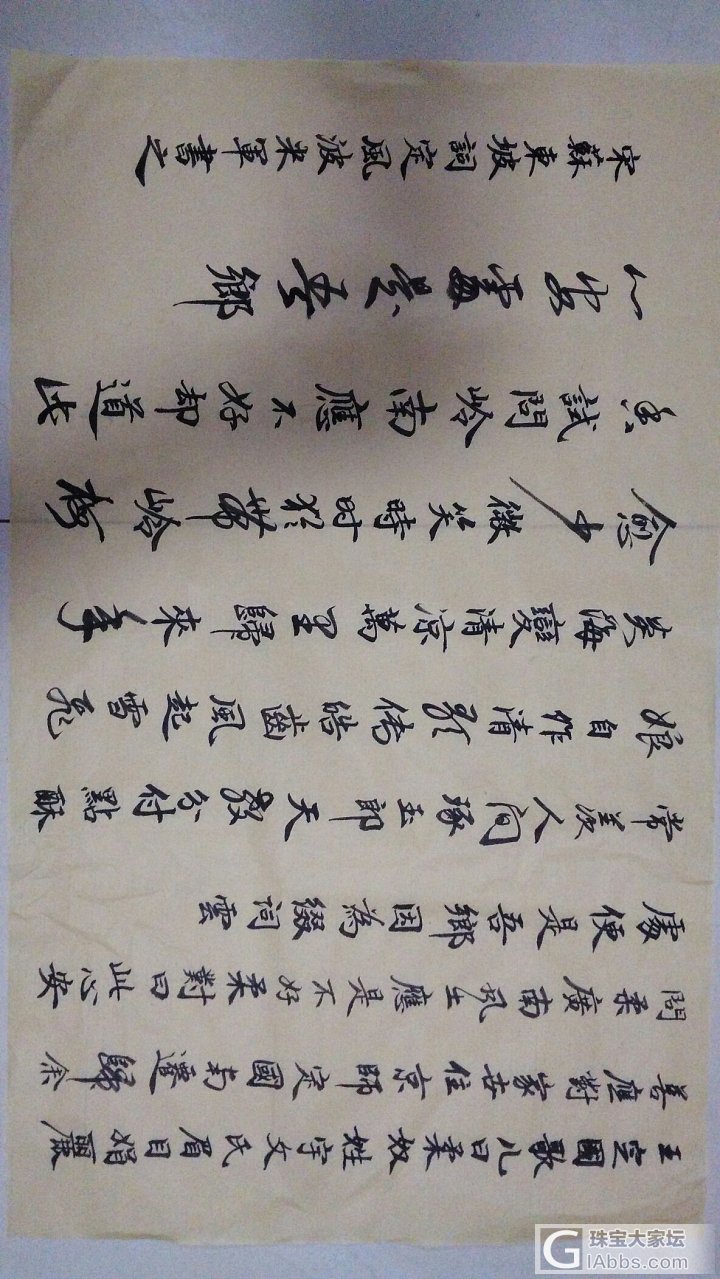 王定國歌儿曰柔奴姓宇文氏眉目娟麗
善應對家世住京師定國南遷歸余
問柔廣南风土應是不好柔對曰此心安
處便是吾鄉因為綴词雲
常羨人间琢玉郎天教分付點酥
娘自作清歌传皓齒風起雪飛
炎海變清凉萬里歸來年
愈少微笑時时犹帶岭梅
香試問岭南應不好却道此
心安處是吾鄉
宋蘇東坡詞定風波米軍書之
珠宝大家坛
GIAbbs.com